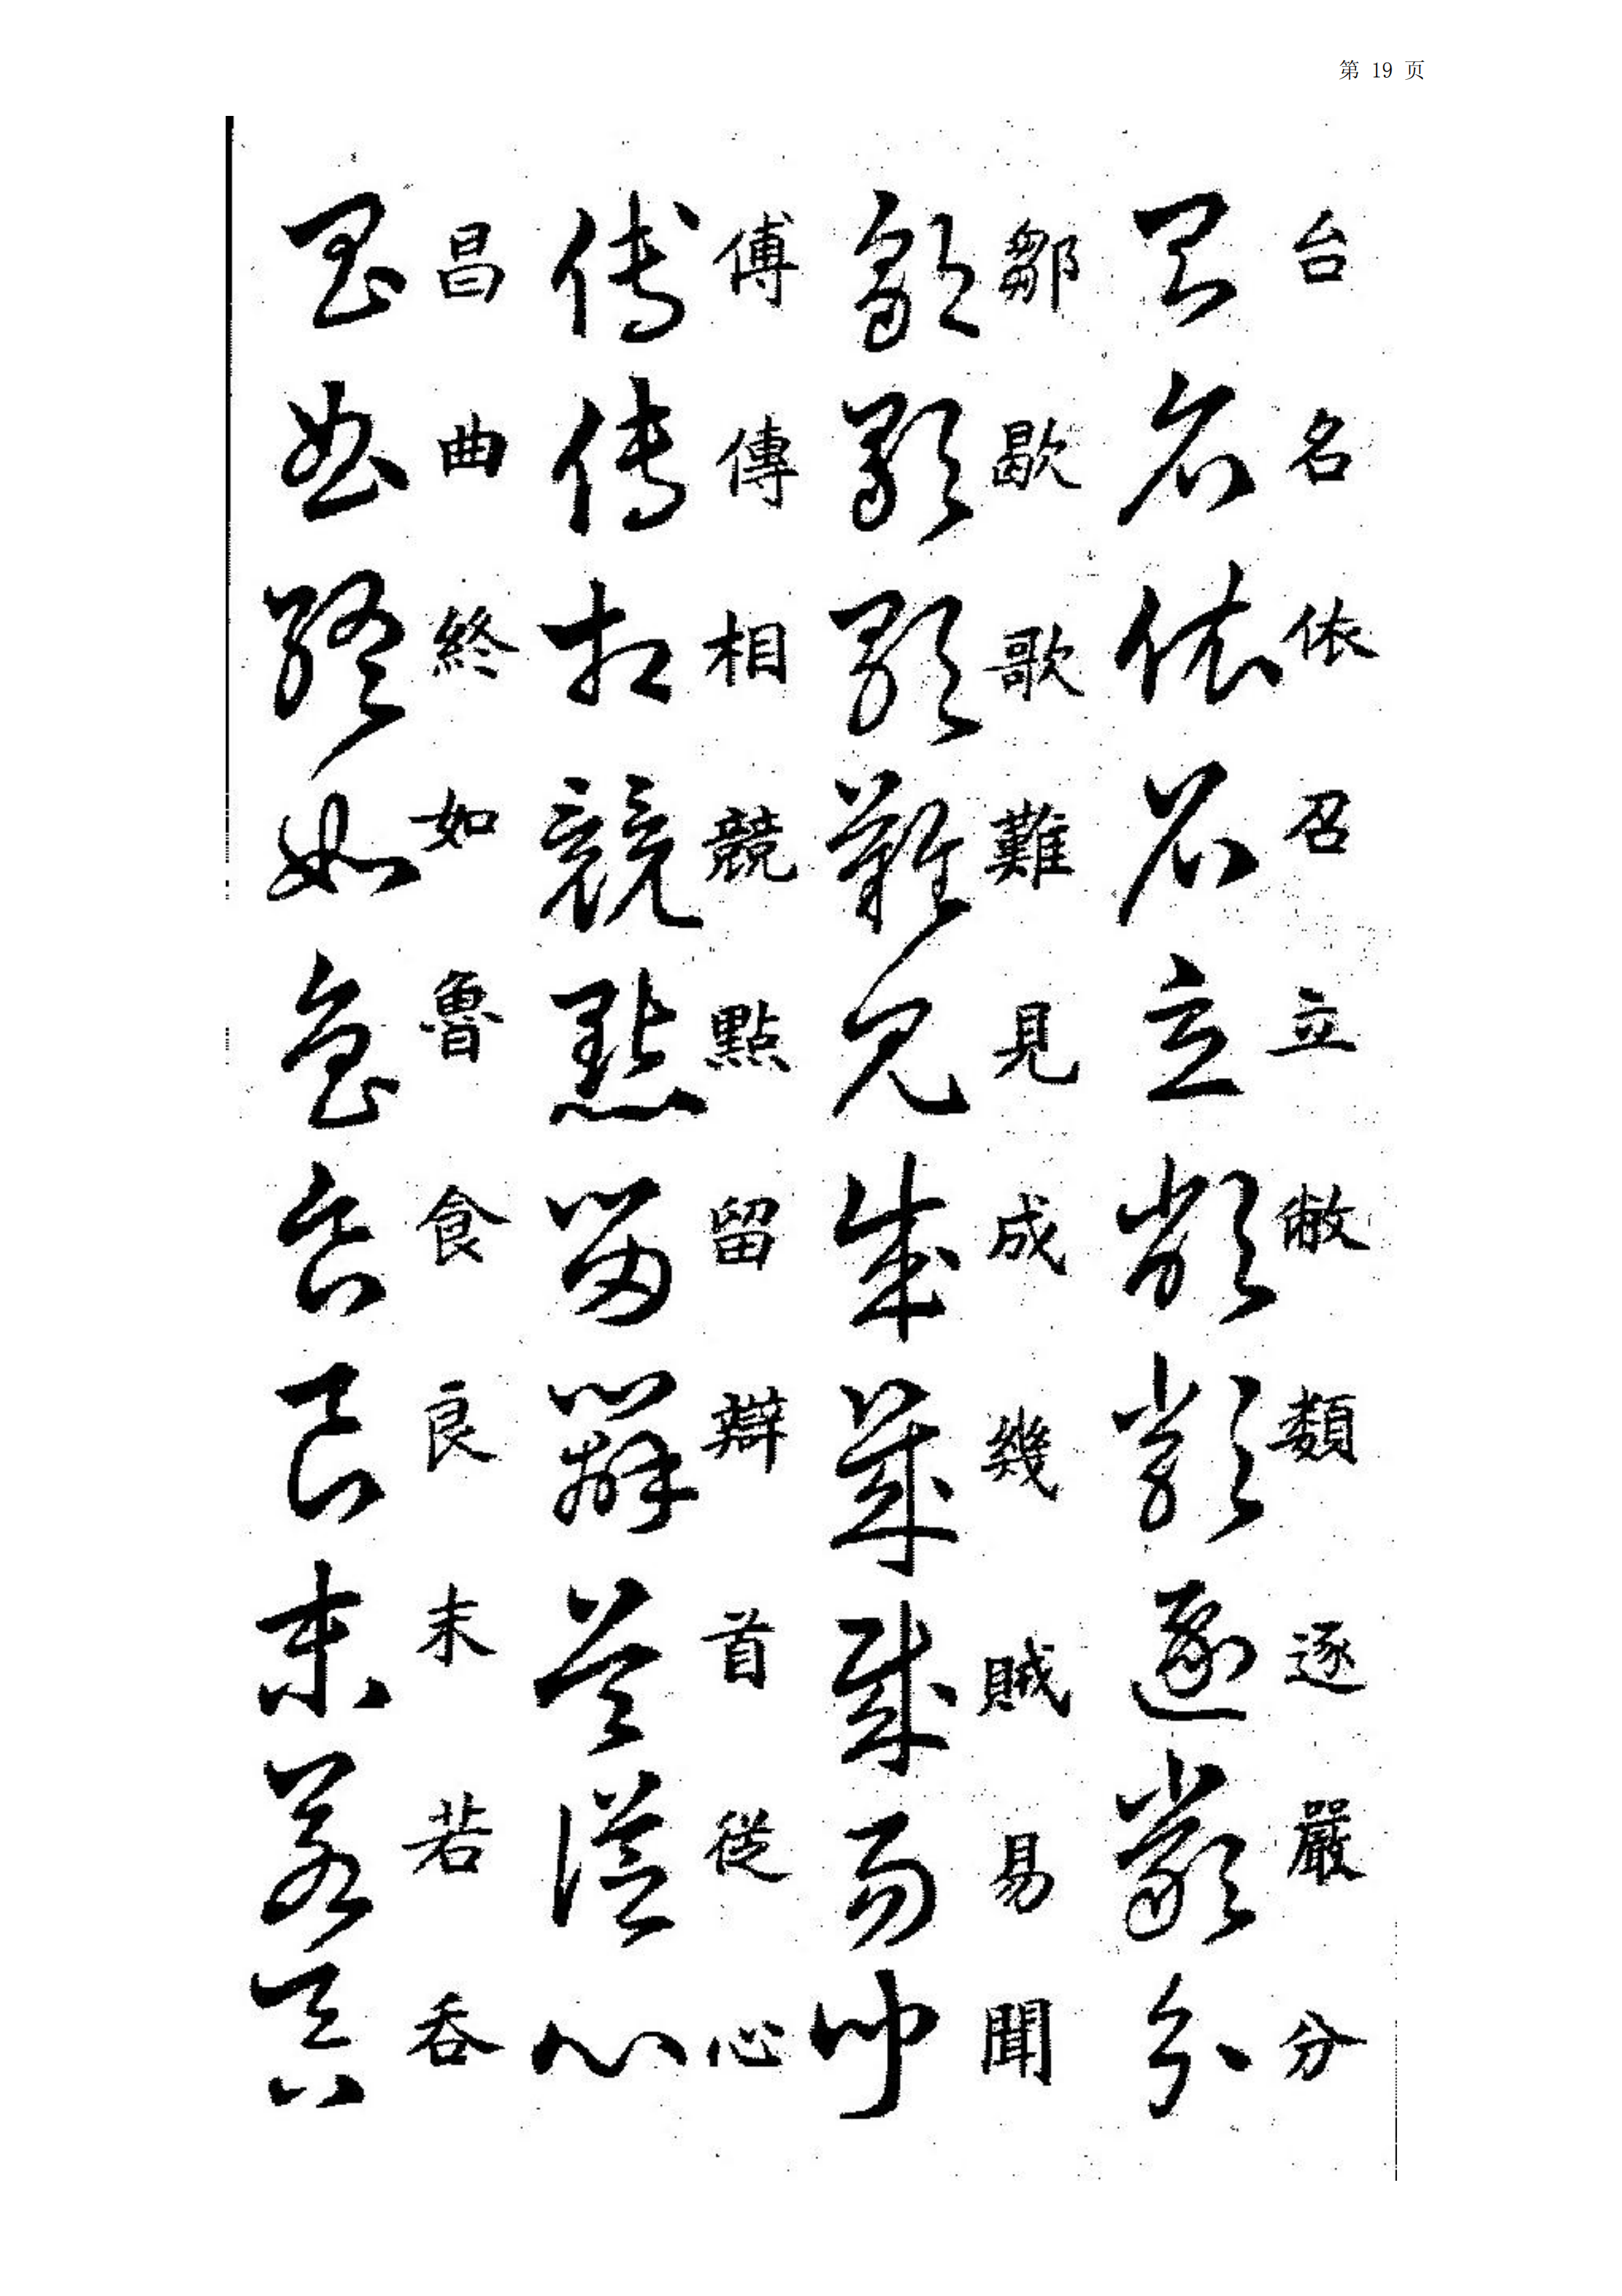 第 19 页
台名依召立敝類逐嚴分
鄒歇歌難見成幾賊易聞
傅傳相競點留辯首從心
昌曲終如魯食良末若吞